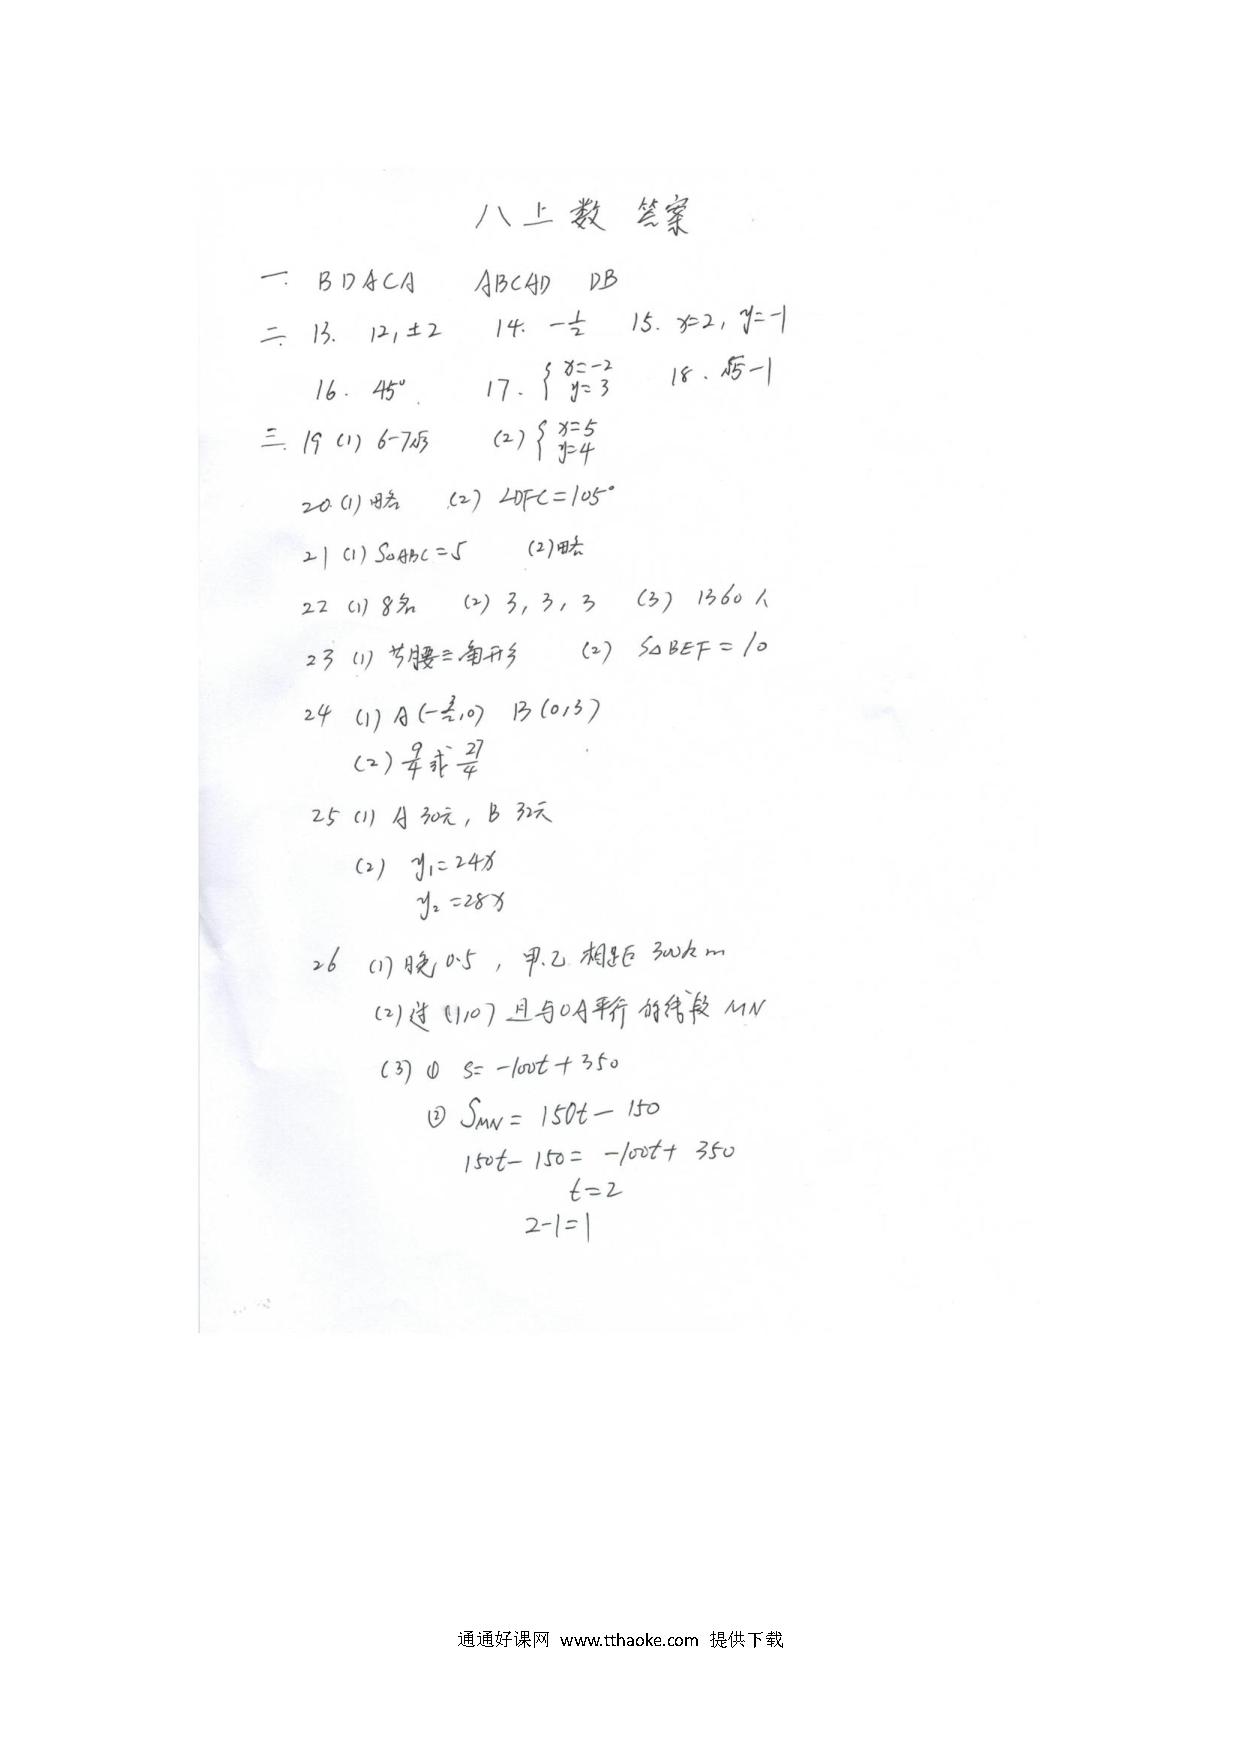 八上数 答案
一. BDACA ABCAD DB
二. 13. 12, ±2 14. -1/2 15. x=2, y=-1
16. 45° 17. {x=-2 y=3 18. √5-1
三. 19 (1) 6-7√3 (2) {x=5 y=4
20. (1) 略 (2) ∠DFC=105°
21 (1) S△ABC=5 (2) 略
22 (1) 8名 (2) 3, 3, 3 (3) 1360人
23 (1) 等腰三角形 (2) S△BEF=10
24 (1) A(-3/2,0) B(0,3)
(2) 9/4 或 27/4
25 (1) A 30元, B 32元
(2) y₁=24x
y₂=28x
26 (1) 晚0.5, 甲.乙相距300km
(2) 过(1,0)且与OA平行的线段MN
(3) ① s=-100t+350
② S_MN=150t-150
150t-150=-100t+350
t=2
2-1=1
通通好课网 www.tthaoke.com 提供下载